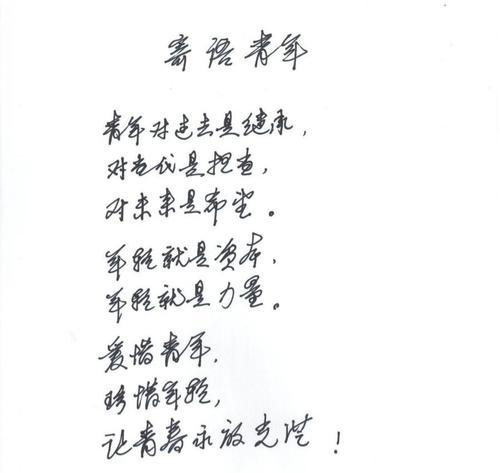 寄语青年
青年对过去是继承,
对当代是担当,
对未来是希望。
年轻就是资本,
年轻就是力量。
爱惜青年,
珍惜年轻,
让青春永放光芒!